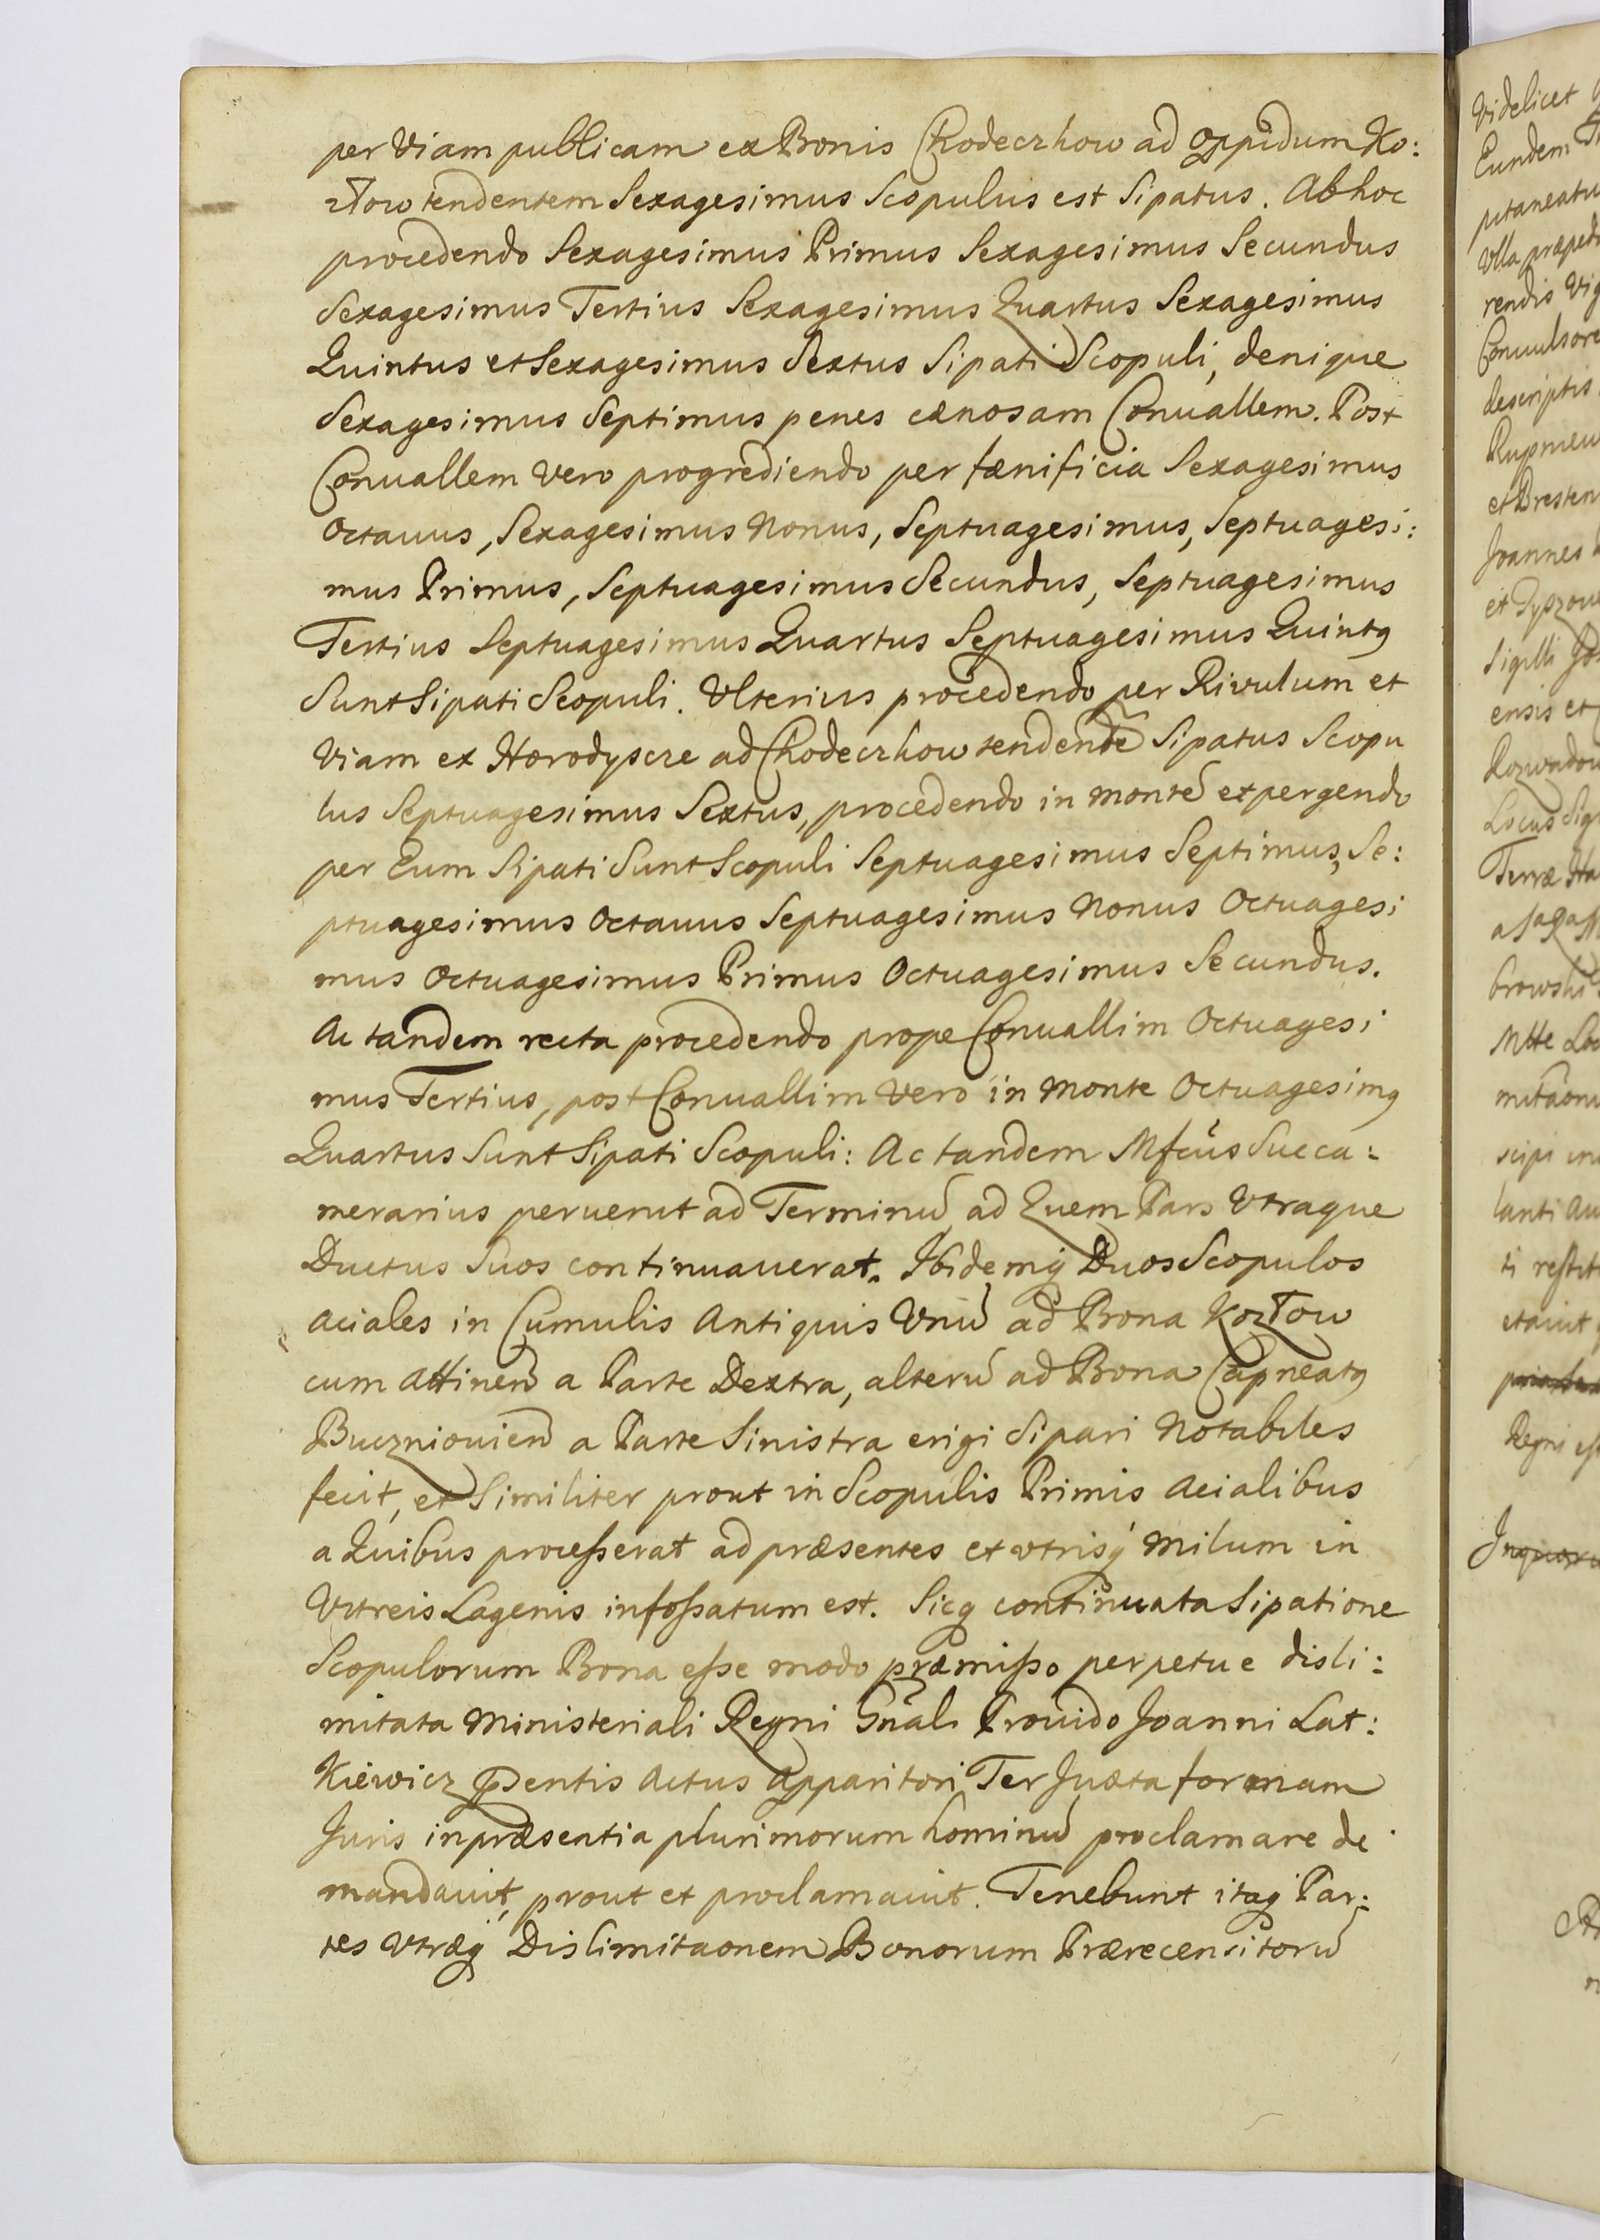 per Viam publicam ex Bonis Chodeczkow ad Oppidum Ko:
złow tendentem Sexagesimus Scopulus est Sipatus. Ab hoc
procedendo Sexagesimus Primus Sexagesimus Secundus
Sexagesimus Tertius Sexagesimus Quartus Sexagesimus
Quintus et Sexagesimus Sextus Sipati Scopuli, denique
Sexagesimus Septimus penes cænosam Conuallem. Post
Conuallem Vero progrediendo per fænificia Sexagesimus
Octauus, Sexagesimus Nonus, Septuagesimus, Septuagesi:
mus Primus, Septuagesimus Secundus, Septuagesimus
Tertius Septuagesimus Quartus Septuagesimus Quintꝯ
Sunt Sipati Scopuli. Vlterius procedendo per Rivulum et
Viam ex Horodyscze ad Chodeczkow tendentẽ Sipatus Scopu
lus Septuagesimus Sextus, procedendo in montẽ et pergendo
per Eum Sipati Sunt Scopuli Septuagesimus Septimus, Se:
ptuagesimus Octauus Septuagesimus Nonus Octuagesi
mus Octuagesimus Primus Octuagesimus Secundus.
Ac tandem recta procedendo prope Conuallim Octuagesi
mus Tertius, post Conuallim Vero in Monte Octuagesimꝯ
Quartus Sunt Sipati Scopuli: Ac tandem Mfcus Succa:
merarius peruenit ad Terminũ ad Quem Pars Vtraque
Ductus Suos continuauerat. Ibidemq́ Duos Scopulos
Aciales in Cumulis Antiquis Vnũ ad Bona Kozłow
cum Attinen̄ a Parte Dextra, alterũ ad Bona Capneatꝯ
Buczniouien̄ a Parte Sinistra erigi Sipari Notabiles
fecit, et Similiter prout in Scopulis Primis Acialibus
a Quibus processerat ad præsentes et vtrisq́ Milum in
Vitreis Lagenis infossatum est. Sicq continuata Sipatione
Scopulorum Bona esse modo præmisso perpetue disli:
mitata Ministeriali Regni Gñali Prouido Joanni Lat:
Kiewicz p̃sentis Actus Apparitori Ter Juxta formam
Juris in præsentia plurimorum hominũ proclamare de
mandauit, prout et proclamauit. Tenebunt itaq́ Par:
tes Vtræq́ Dislimitaonem Bonorum Prærecensitorũ
Videlicet
Eundem
Vlla
rendis
descriptis
Joannes
Sigilli
ensis et
Locus
Terræ
lanti
Regni